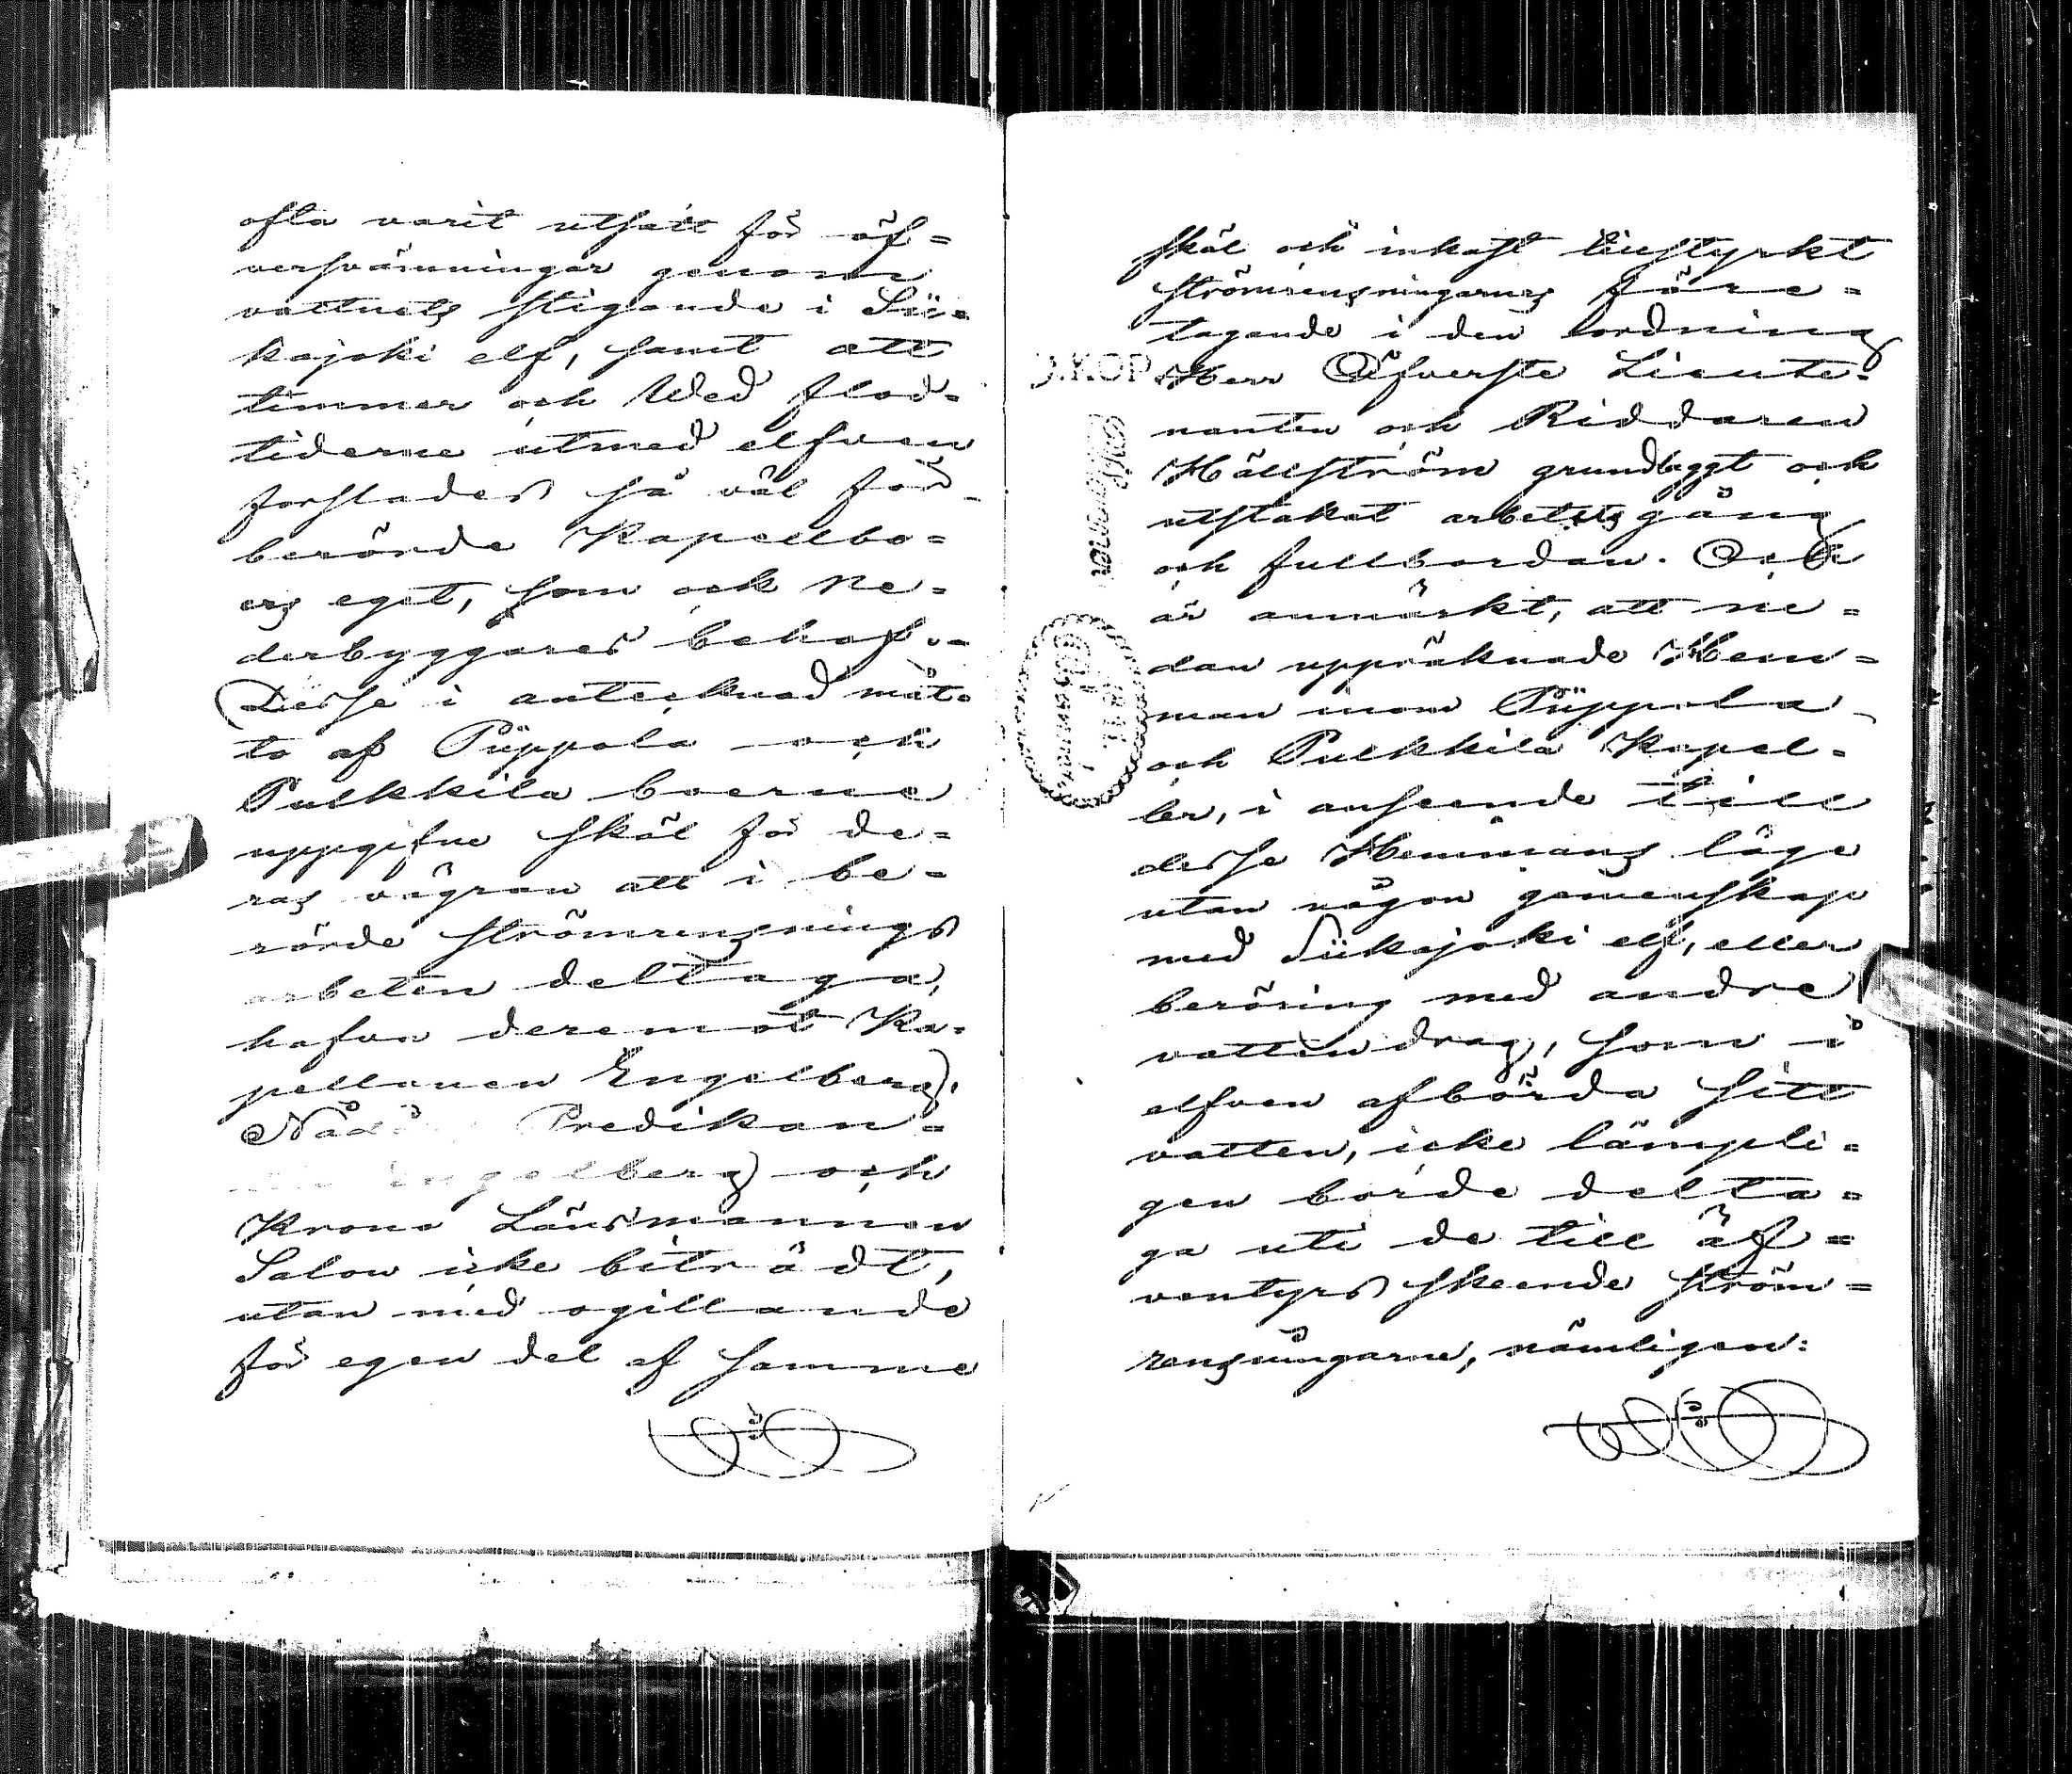 ofta varit utsatt för öf=
versvämningar genom
vattnets stigande i Sii=
kajoki elf, samt att
timmer och Wed flod=
tiderne utmed elfven
forslades så väl för
berörde Kapellbo=
ers eget, som ock Ne=
derbyggares behof..
Desse i antecknad måt=
to af Piippola och
Pulkkila boerne
uppgifne skäl för de=
ras vägran att i be=
rörde strömrensnings
arbeten deltaga,
hafva deremot Ka=
pellanen Engelberg,
Predikan=
Engelberg och
Krono Länsmannen
Salow icke biträdt,
utan med ogillande
för egen del af samme
skäl och inkast tillstyrkt
strömrensningarnes före=
tagande i den ordning
Herr Öfverste Lieute=
nanten och Riddaren
Hällström grundlaggt och
utstakat arbetets gång
och fullbordan. Och
är anmärkt, att ne=
dan uppräknade Hem=
man inom Piippola
och Pulkkila Kapel=
ler, i anseende till
desse Hemmans läge
utan någon gemenskap
med Siikajoki elf, eller
beröring med andre
vattendrag, som i
elfven afbörda sitt
vatten, icke lämpli=
gen borde delta=
ga uti de till äf=
ventyrs skeende ström=
rensningarne, nämligen: